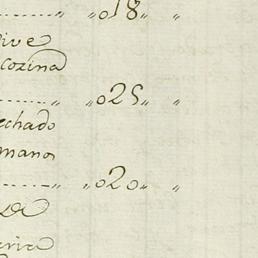 ........ „ „ 018 „ „
ive
cozina
........ „ „ 025 „ „
chado
mano
........ „ „ 020 „ „